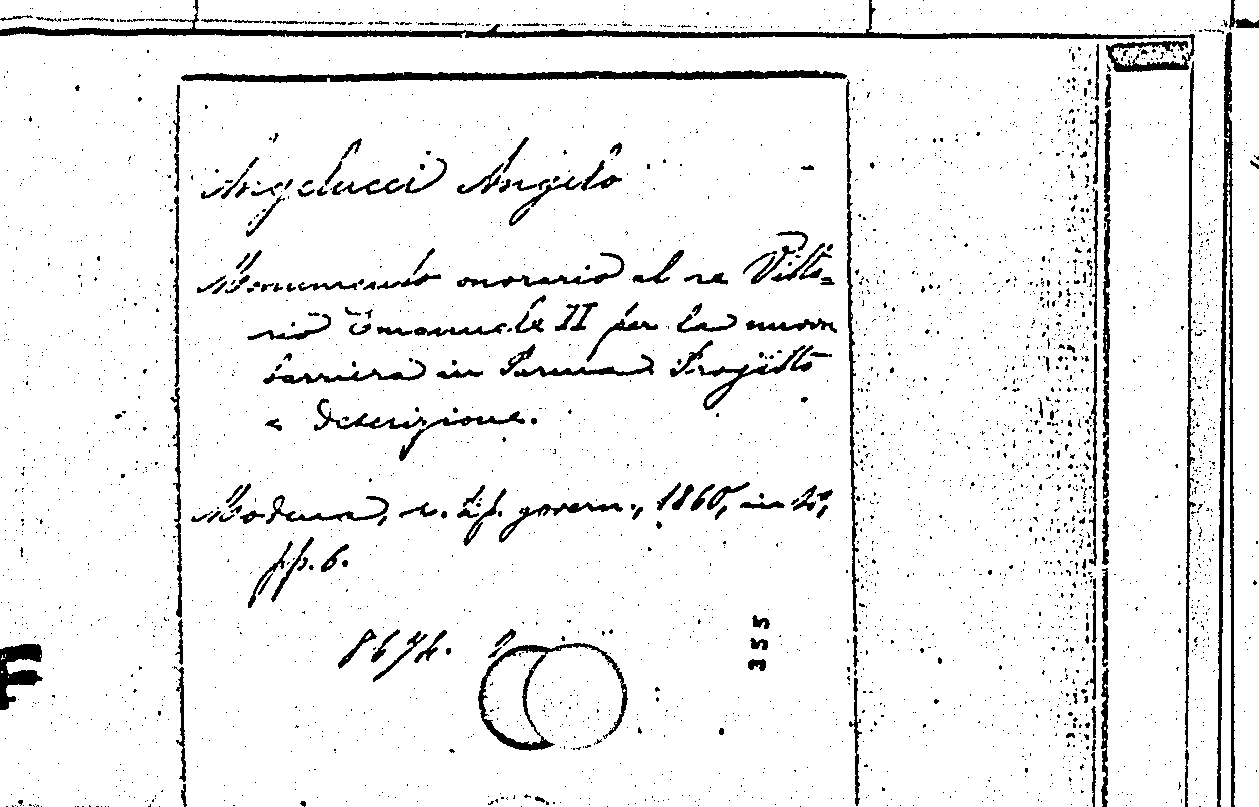 Angelucci Angelo
Monumento onorario al re Vitto=
rio Emanuele II per la nuova
barriera in Parma. Progetto
e descrizione.
Modena, r. tip. govern., 1860, in 2°,
pp. 6.
355